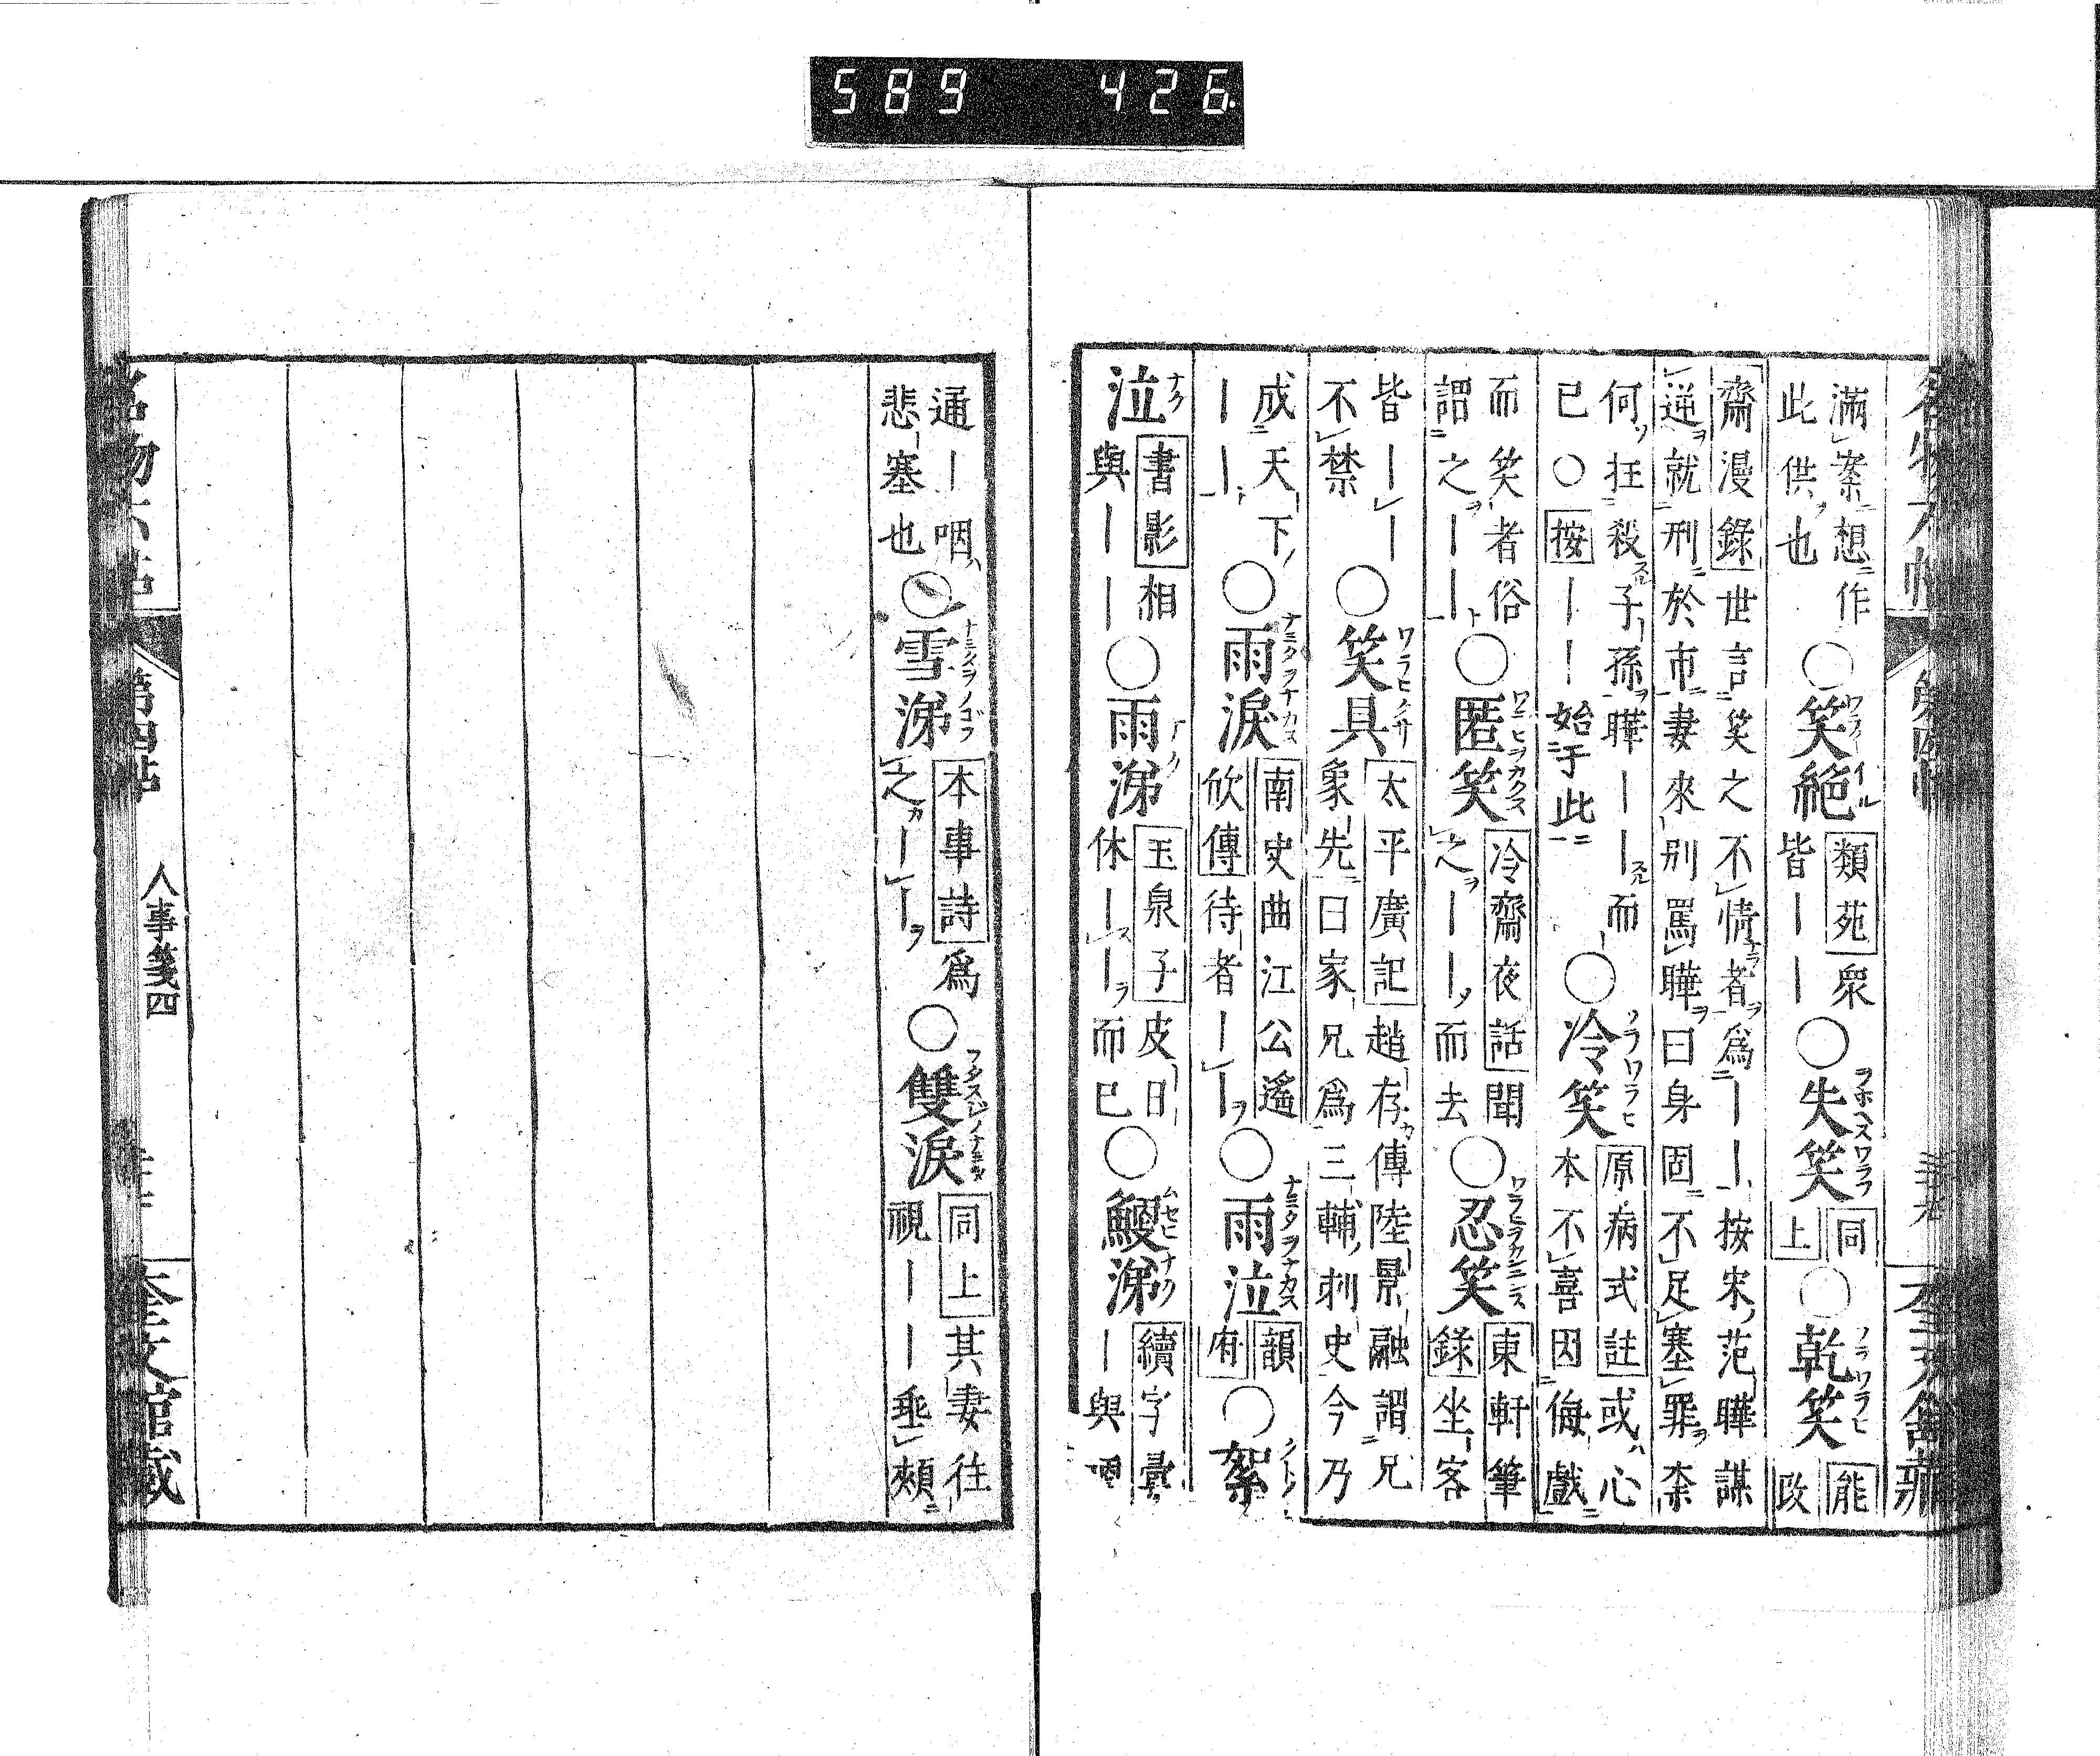 589 426
滿案想作
此供也
○笑絶
類苑衆
皆——
○失笑
同
上
○乾笑
能
政
齋漫錄世言笑之不情者爲——按宋范曄謀
逆就刑於市妻來別罵曄曰身固不足塞罪柰
何狂殺子孫曄——而
已○按———始于此
○冷笑
原病式註或心
本不喜因侮戲
而笑者俗
謂之——
○匿笑
冷齋夜話聞
之——而去
○忍笑
東軒筆
錄坐客
皆——
不禁
○笑具
太平廣記趙存傳陸景融謂兄
象先曰家兄爲三輔刺史今乃
成天下
——
○雨淚
南史曲江公遙
欣傳待者——
○雨泣
韻
府
○絮
泣
書影相
與——
○雨涕
玉泉子皮日
休——而已
○鰋涕
續字彙
—與
通—咽
悲塞也
○雪涕
本事詩爲
之——
○雙淚
同上其妻往
視——垂頰
名物六帖
第四帖
人事箋四
奎文館藏